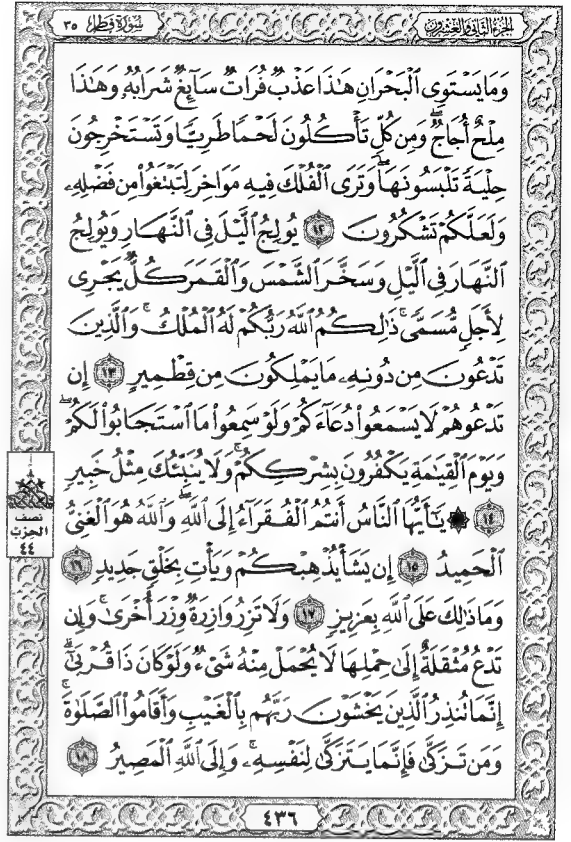 سورة فاطر ٣٥
الجزء الثاني والعشرون
وَمَا يَسْتَوِي ٱلْبَحْرَانِ هَٰذَا عَذْبٌ فُرَاتٌ سَآئِغٌ شَرَابُهُۥ وَهَٰذَا
مِلْحٌ أُجَاجٌ ۖ وَمِن كُلٍّ تَأْكُلُونَ لَحْمًا طَرِيًّا وَتَسْتَخْرِجُونَ
حِلْيَةً تَلْبَسُونَهَا ۖ وَتَرَى ٱلْفُلْكَ فِيهِ مَوَاخِرَ لِتَبْتَغُوا۟ مِن فَضْلِهِۦ
وَلَعَلَّكُمْ تَشْكُرُونَ ١٢ يُولِجُ ٱلَّيْلَ فِي ٱلنَّهَارِ وَيُولِجُ
ٱلنَّهَارَ فِي ٱلَّيْلِ وَسَخَّرَ ٱلشَّمْسَ وَٱلْقَمَرَ كُلٌّ يَجْرِي
لِأَجَلٍ مُّسَمًّى ۚ ذَٰلِكُمُ ٱللَّهُ رَبُّكُمْ لَهُ ٱلْمُلْكُ ۚ وَٱلَّذِينَ
تَدْعُونَ مِن دُونِهِۦ مَا يَمْلِكُونَ مِن قِطْمِيرٍ ١٣ إِن
تَدْعُوهُمْ لَا يَسْمَعُوا۟ دُعَآءَكُمْ وَلَوْ سَمِعُوا۟ مَا ٱسْتَجَابُوا۟ لَكُمْ ۖ
وَيَوْمَ ٱلْقِيَٰمَةِ يَكْفُرُونَ بِشِرْكِكُمْ ۚ وَلَا يُنَبِّئُكَ مِثْلُ خَبِيرٍ
١٤ ۞ يَٰٓأَيُّهَا ٱلنَّاسُ أَنتُمُ ٱلْفُقَرَآءُ إِلَى ٱللَّهِ ۖ وَٱللَّهُ هُوَ ٱلْغَنِيُّ
ٱلْحَمِيدُ ١٥ إِن يَشَأْ يُذْهِبْكُمْ وَيَأْتِ بِخَلْقٍ جَدِيدٍ ١٦
وَمَا ذَٰلِكَ عَلَى ٱللَّهِ بِعَزِيزٍ ١٧ وَلَا تَزِرُ وَازِرَةٌ وِزْرَ أُخْرَىٰ ۚ وَإِن
تَدْعُ مُثْقَلَةٌ إِلَىٰ حِمْلِهَا لَا يُحْمَلْ مِنْهُ شَيْءٌ وَلَوْ كَانَ ذَا قُرْبَىٰٓ ۗ
إِنَّمَا تُنذِرُ ٱلَّذِينَ يَخْشَوْنَ رَبَّهُم بِٱلْغَيْبِ وَأَقَامُوا۟ ٱلصَّلَوٰةَ ۚ
وَمَن تَزَكَّىٰ فَإِنَّمَا يَتَزَكَّىٰ لِنَفْسِهِۦ ۚ وَإِلَى ٱللَّهِ ٱلْمَصِيرُ ١٨
نصف
الحزب
٤٤
٤٣٦